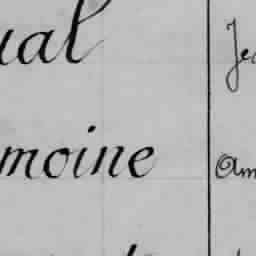 ual Je
moine Am